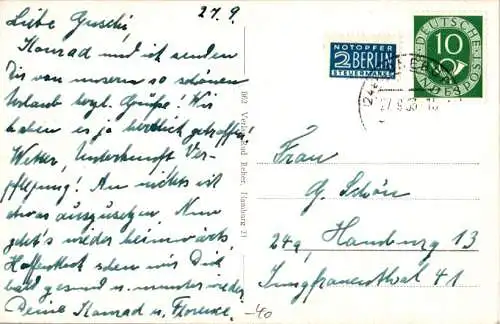 27.9.
Liebe Guschi,
Konrad und ich senden
Dir von unserm so schönen
Urlaub herzl. Grüße! Wir
haben es ja herrlich getroffen!
Wetter, Unterkunft Ver-
pflegung! An nichts ist
etwas auszusetzen. Nun
geht's wieder heimwärts.
Hoffentlich sehen wir Dich
bald gesund u. munter wieder
Deine Konrad u. Florence.
962 Verlag Rud Reher, Hamburg 21
NOTOPFER
2 BERLIN
STEUERMARKE
DEUTSCHE
BUNDESPOST
10
Frau
G. Schön
24a, Hamburg 13
Jungfrauenthal 41
-40